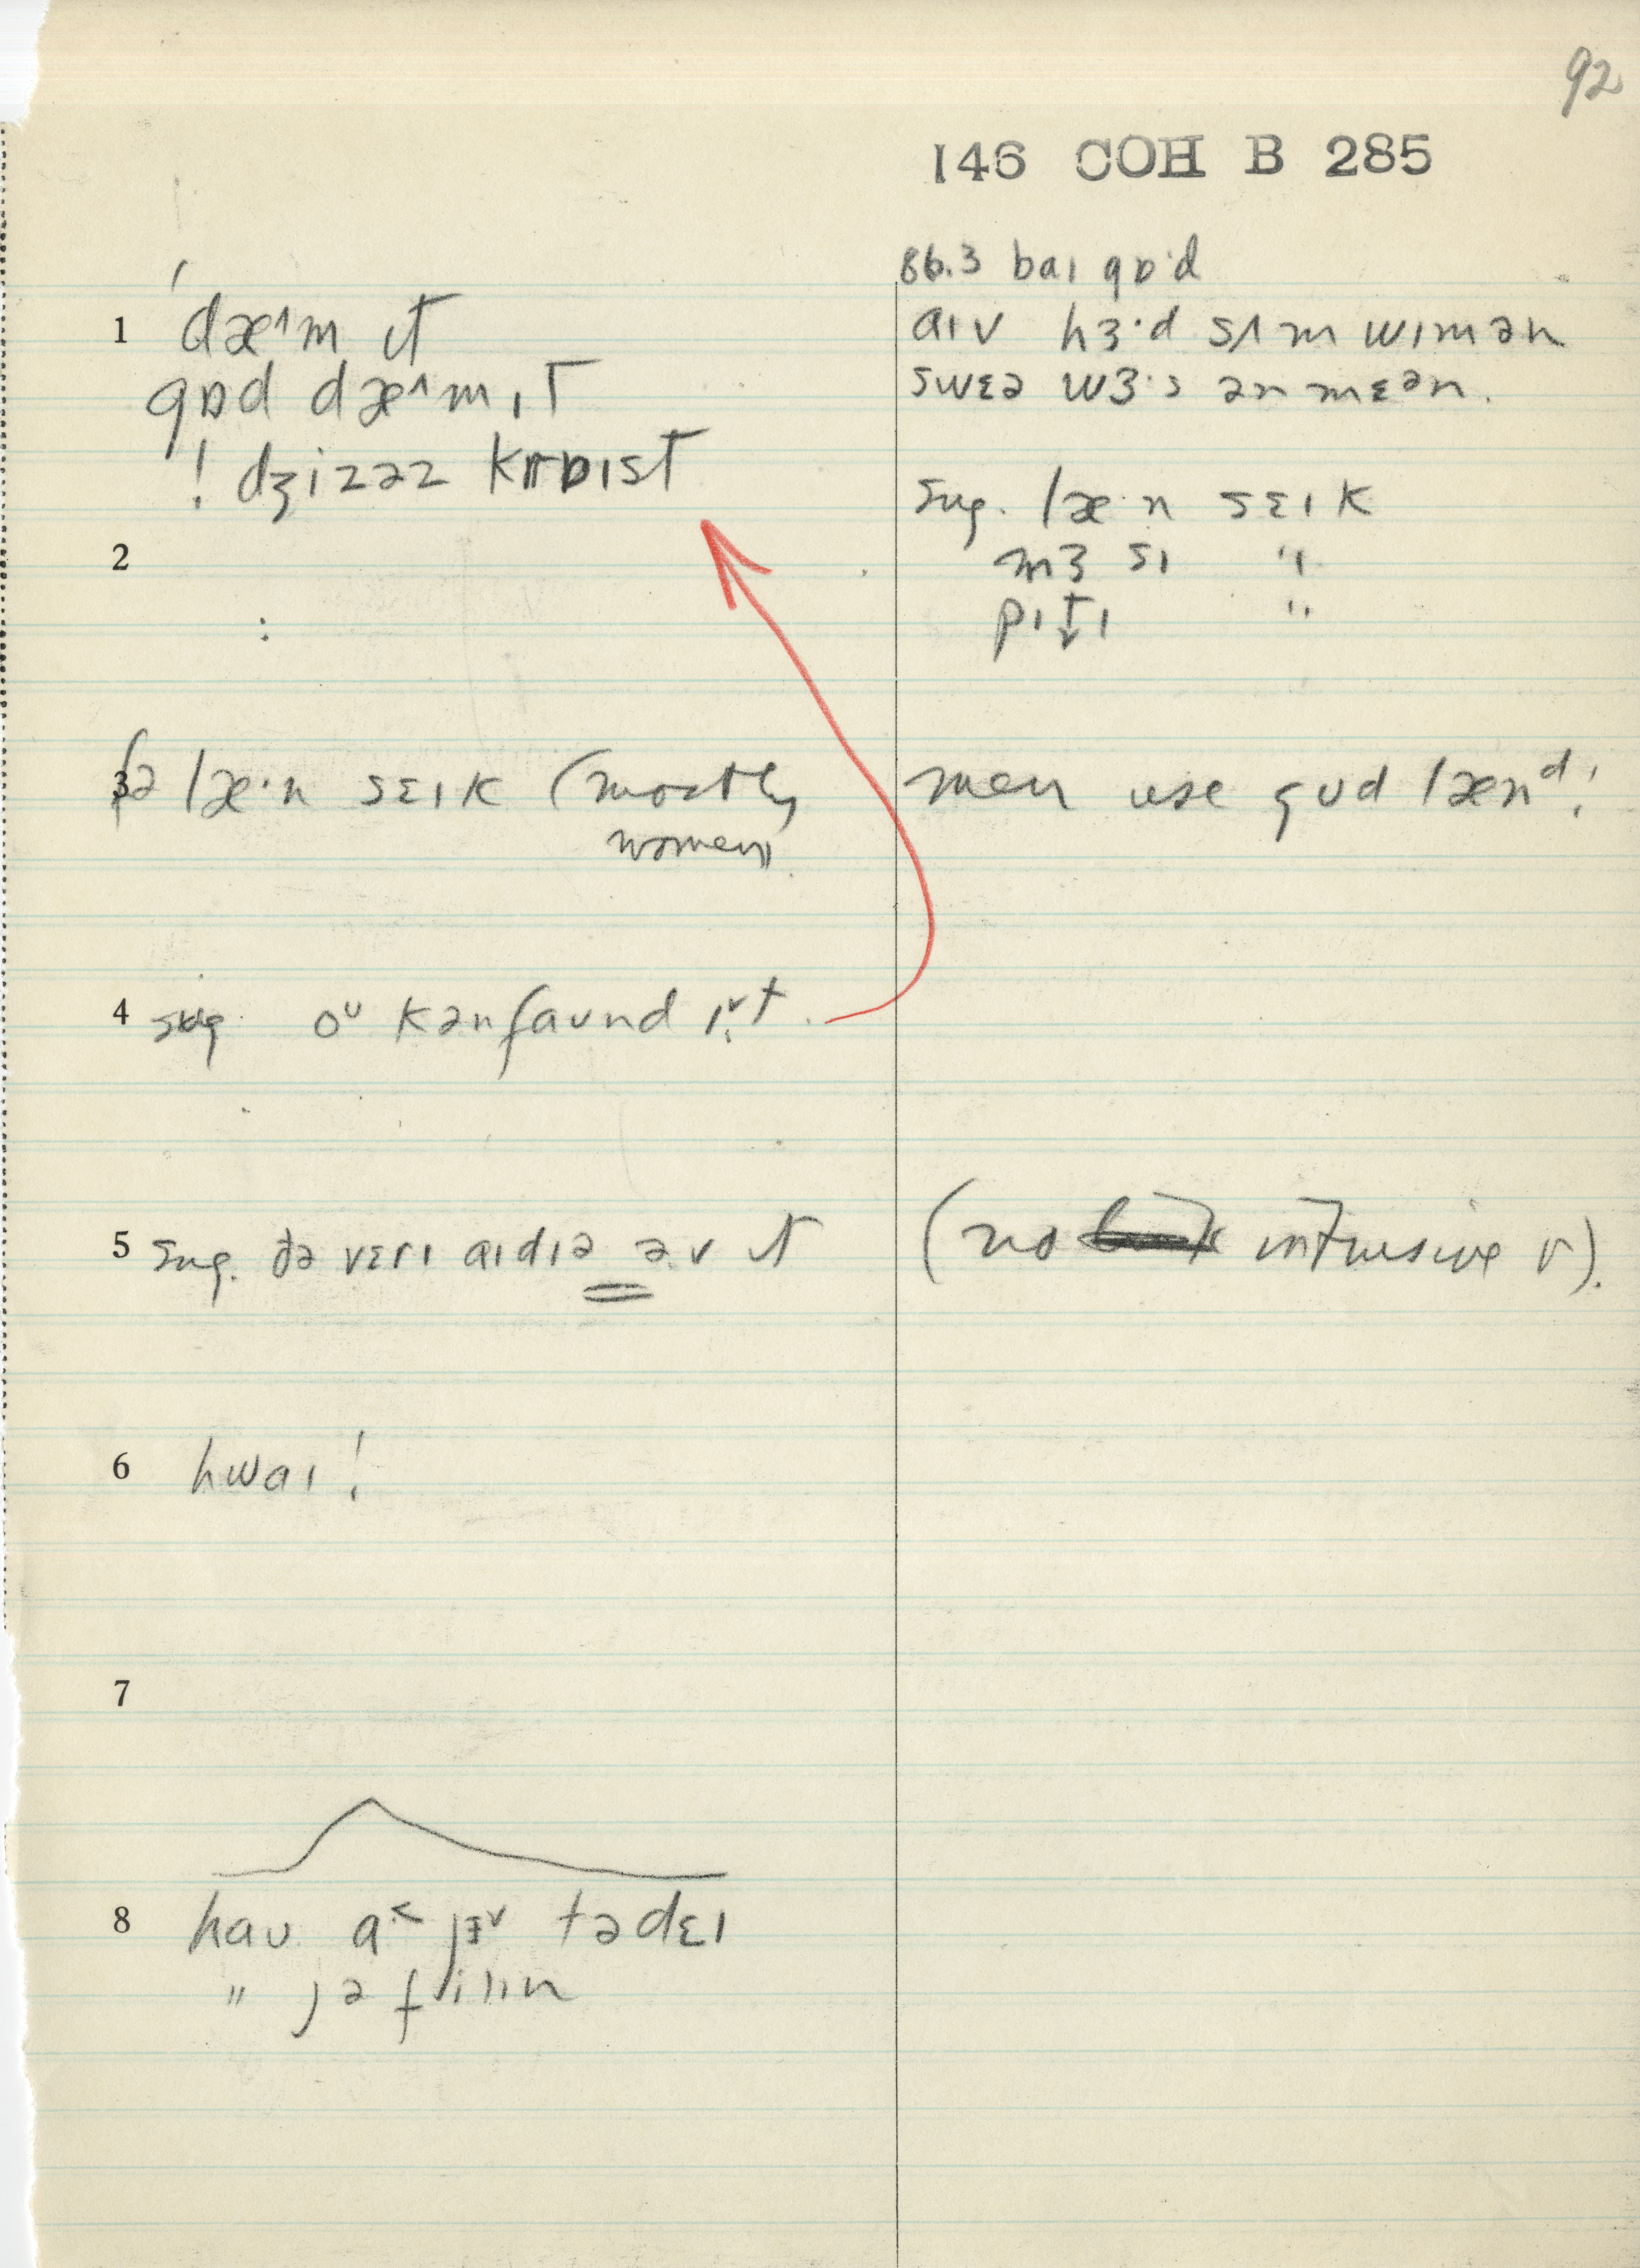 92
146 COH B 285
86.3 baɪ gɒ·d
1 dæ˄m ɪt
gɒd dæ˄m ɪt
! dʒizəz krɒɪst
aɪv hɜ·d sʌm wɪmən
swɛə wɜ·s ən mɛən.
2
:
sug. læ·n sɛɪk
mɜsɪ "
pɪt̬ɪ "
3 fə læ·n sɛɪk (mostly
women)
men use gʊd lænᵈ!
4 sug oᴜ kənfaʊnd ɪ˅t.
5 sug. ðə vɛrɪ aɪdɪə əv ɪt
(no intrusive r).
6 hwaɪ!
7
8 haʊ a˂ jᵻ˅ tədɛɪ
" jə filɪn